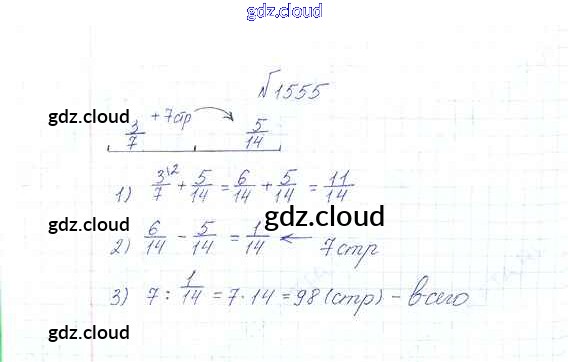 gdz.cloud
№1555
gdz.cloud
3/7 +7стр 5/14
1) 3\2/7 + 5/14 = 6/14 + 5/14 = 11/14
gdz.cloud
2) 6/14 - 5/14 = 1/14 ← 7стр
3) 7 : 1/14 = 7·14 = 98 (стр) - всего
gdz.cloud
gdz.cloud